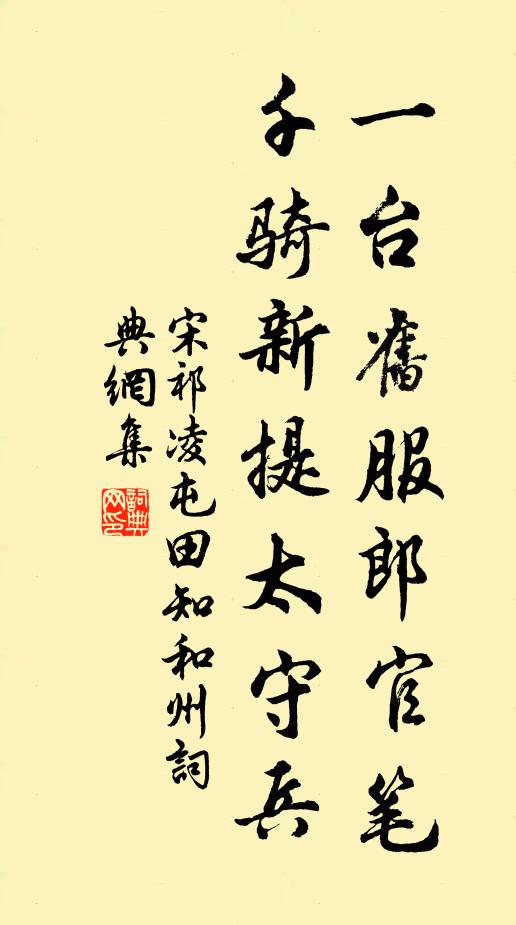 一台舊服郎官笔
千骑新提太守兵
宋祁凌屯田知和州詞
典網集
詞典网印